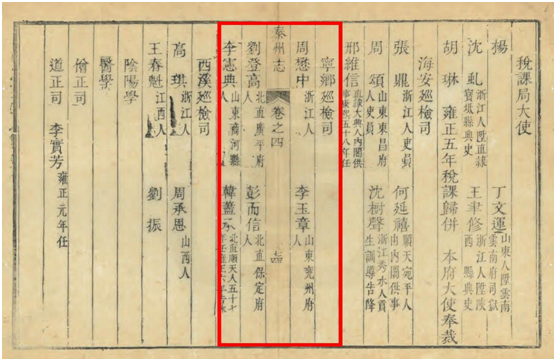 稅課局大使
楊 丁文運 山東人陞雲南雲南府司獄
沈虬 浙江人陞直隸寶坻縣典史 王聿修 浙江人陞陝西 縣典史
胡琳 雍正五年稅課歸併 本府大使奉裁
海安巡檢司
張鼎 浙江人吏員 何延禧 順天宛平人由內閣供事
周頌 山東東昌府人吏員 沈樹聲 浙江秀水人貢生訓導告降
邢維信 直隸大興人內閣供事康熙五十八年任
寧鄉巡檢司
周懋中 浙江人 李玉章 山東兗州府人
泰州志 卷之四 十四
劉登高 北直廣平府人 彭而信 北直保定府人
李憲典 山東齊河縣人 韓蓋 北直順天人五十七
西溪巡檢司
高琪 浙江人 周承恩 山西人
王春魁 江西人 劉振
陰陽學
醫學
僧正司
道正司 李實芳 雍正元年任